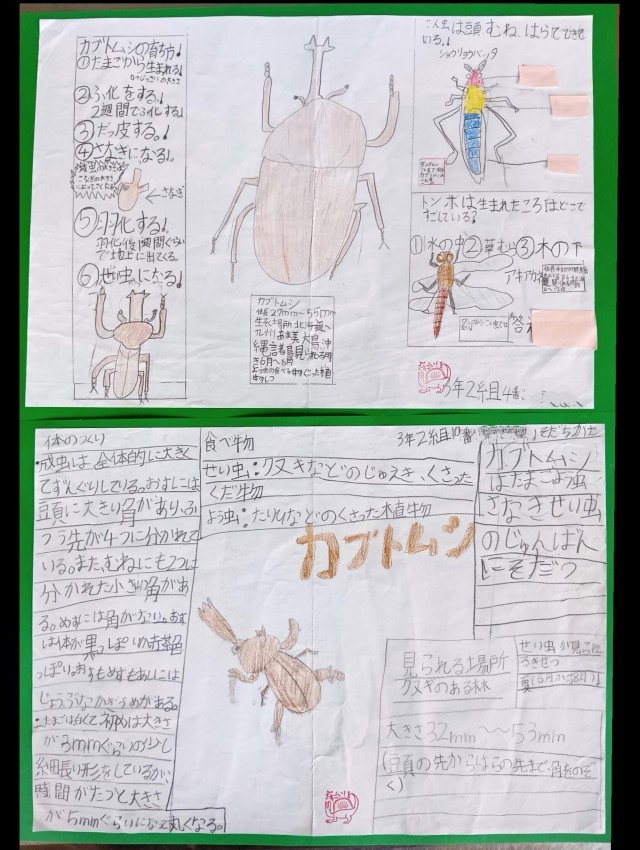 カブトムシの育ち方!
①たまごから生まれる!
②ふ化をする。!
2週間でふ化する。
③だっ皮する。!
④さなぎになる!。
←さなぎ
⑤羽化する!
羽化後1週間ぐらい
で地上に出てくる。
⑥成虫になる!
カブトムシ
体長27mm〜55mm
生息場所 北海道〜
九州 奄美大島 沖
縄諸島 見られる時
き6月〜8月
こん虫は頭、むね、はらでできて
いる。!
ショウリョウバッタ
トンボは生まれたころはどこで
すごしている?
①水の中②草むら③木の下
アキアカネ
答え
3年2組4番
体のつくり
・成虫は全体的に大きく
てずんぐりしている。おすには
頭に大きい角があり、ふ
つう先が4つに分かれて
いる。また、むねにも2つに
分かれた小さい角があ
る。めすには角がない。おす
は体が黒っぽいか赤茶
っぽい。おすもめすもあしには
じょうぶなかぎづめがある。
・たまごは白くて初めは大きさ
が3mmぐらいの少し
細長い形をしているが、
時間がたつと大きさ
が5mmぐらいになって丸くなる。
食べ物
せい虫:クヌギなどのじゅえき、くさった
くだ物
よう虫:たいひなどのくさった植物
カブトムシ
3年2組10番
そだちかた
カブトムシ
はたまごよう虫
さなぎせい虫
のじゅんばん
にそだつ
見られる場所
クヌギのある林
せい虫が見られ
るきせつ
夏(6月から8月)
大きさ32mm〜53mm
(頭の先からはらの先まで、角をのぞ
く)